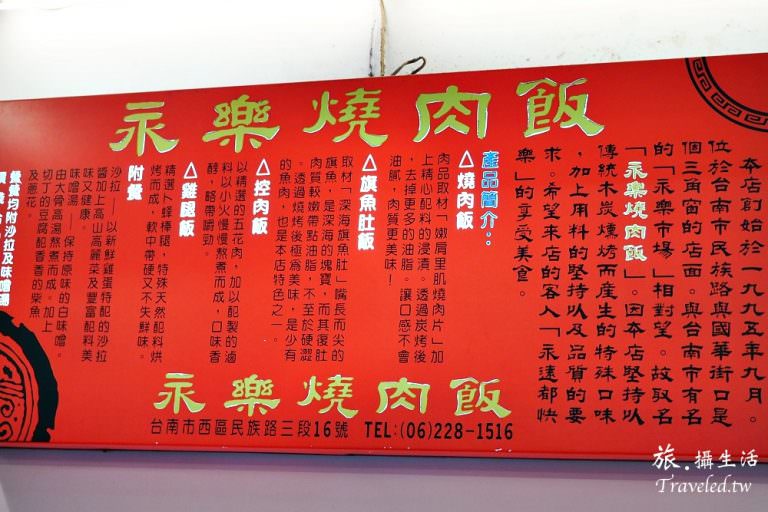 永樂燒肉飯
本店創始於一九九五年九月。
位於台南市民族路與國華街口是
個三角窗的店面。與台南市有名
的「永樂市場」相對望。故取名
「永樂燒肉飯」。因本店堅持以
傳統木炭燻烤而產生的特殊口味
，加上用料的堅持以及品質的要
求。希望來店的客人「永遠都快
樂」的享受美食。
產品簡介：
△燒肉飯
肉品取材「嫩肩里肌燒肉片」加
上精心配料的浸漬。透過炭烤後
，去掉更多的油脂。讓口感不會
油膩，肉質更美味！
△旗魚肚飯
取材「深海旗魚肚」嘴長而尖的
旗魚，是深海的塊寶，而其復肚
肉質較嫩帶點油脂，不至於硬澀
。透過燒烤後極為美味，是少有
的魚肉，也是本店特色之一。
△控肉飯
以精選的五花肉，加以配製的滷
料以小火慢慢熬煮而成，口味香
醇，略帶嚼勁。
△雞腿飯
精選卜蜂棒腿，特殊天然配料烘
烤而成，軟中帶硬又不失鮮味。
附餐
沙拉—以新鮮雞蛋特配的沙拉
醬加上高山高麗菜及豐富配料美
味又健康。
味噌湯—保持原味的白味噌。
由大骨高湯熬煮而成。加上
切丁的豆腐配香香的柴魚
及蔥花。
餐餐均附沙拉及味噌湯
永樂燒肉飯
台南市西區民族路三段16號 TEL:(06)228-1516
旅.攝生活
Traveled.tw